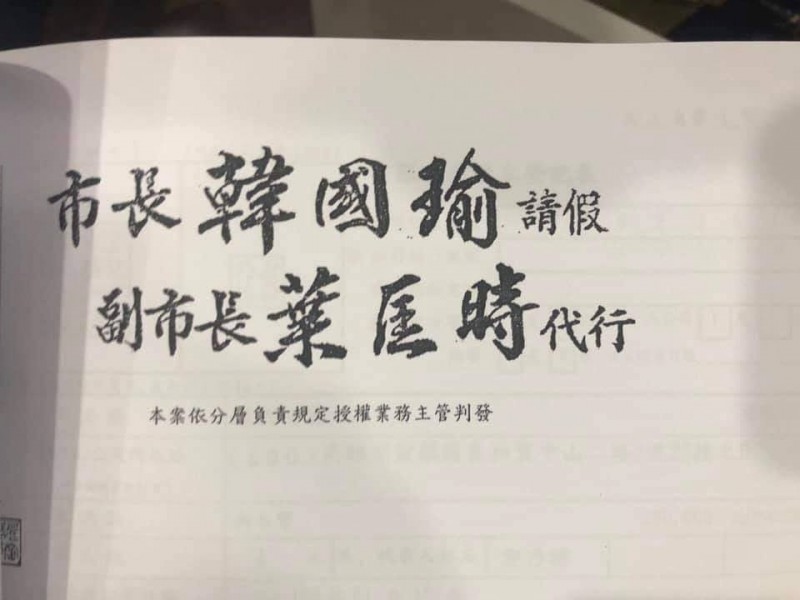 市長韓國瑜請假
副市長葉匡時代行
本案依分層負責規定授權業務主管判發